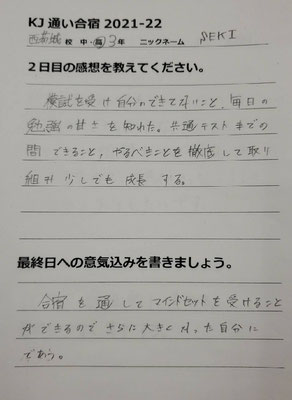 KJ 通い合宿 2021-22
西葛城校 中・高3年 ニックネーム SEKI
2日目の感想を教えてください。
模試を受け自分のできてないこと、毎日の
勉強の甘さを知れた。共通テストまでの
間できること、やるべきことを徹底して取り
組み少しでも成長する。
最終日への意気込みを書きましょう。
合宿を通してマインドセットを受けること
ができるのでさらに大きくなった自分に
であう。